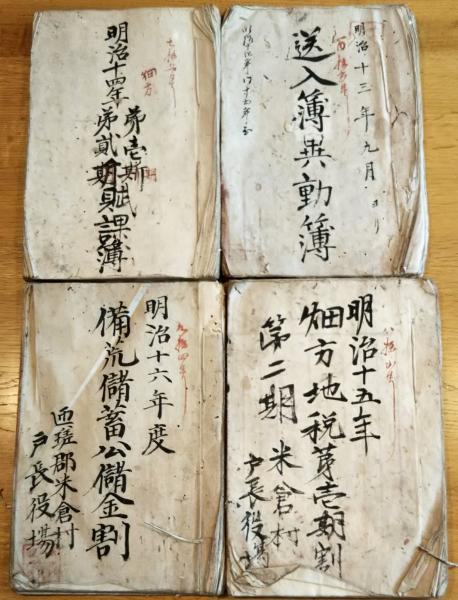 明治十三年九月ヨリ
送入簿異動簿
明治十四年
畑方
第壱期
第貳期賦課簿
明治十五年
畑方地税第壱期割
第二期
米倉村
戸長役場
明治十六年度
備荒儲蓄公儲金割
匝瑳郡米倉村
戸長役場